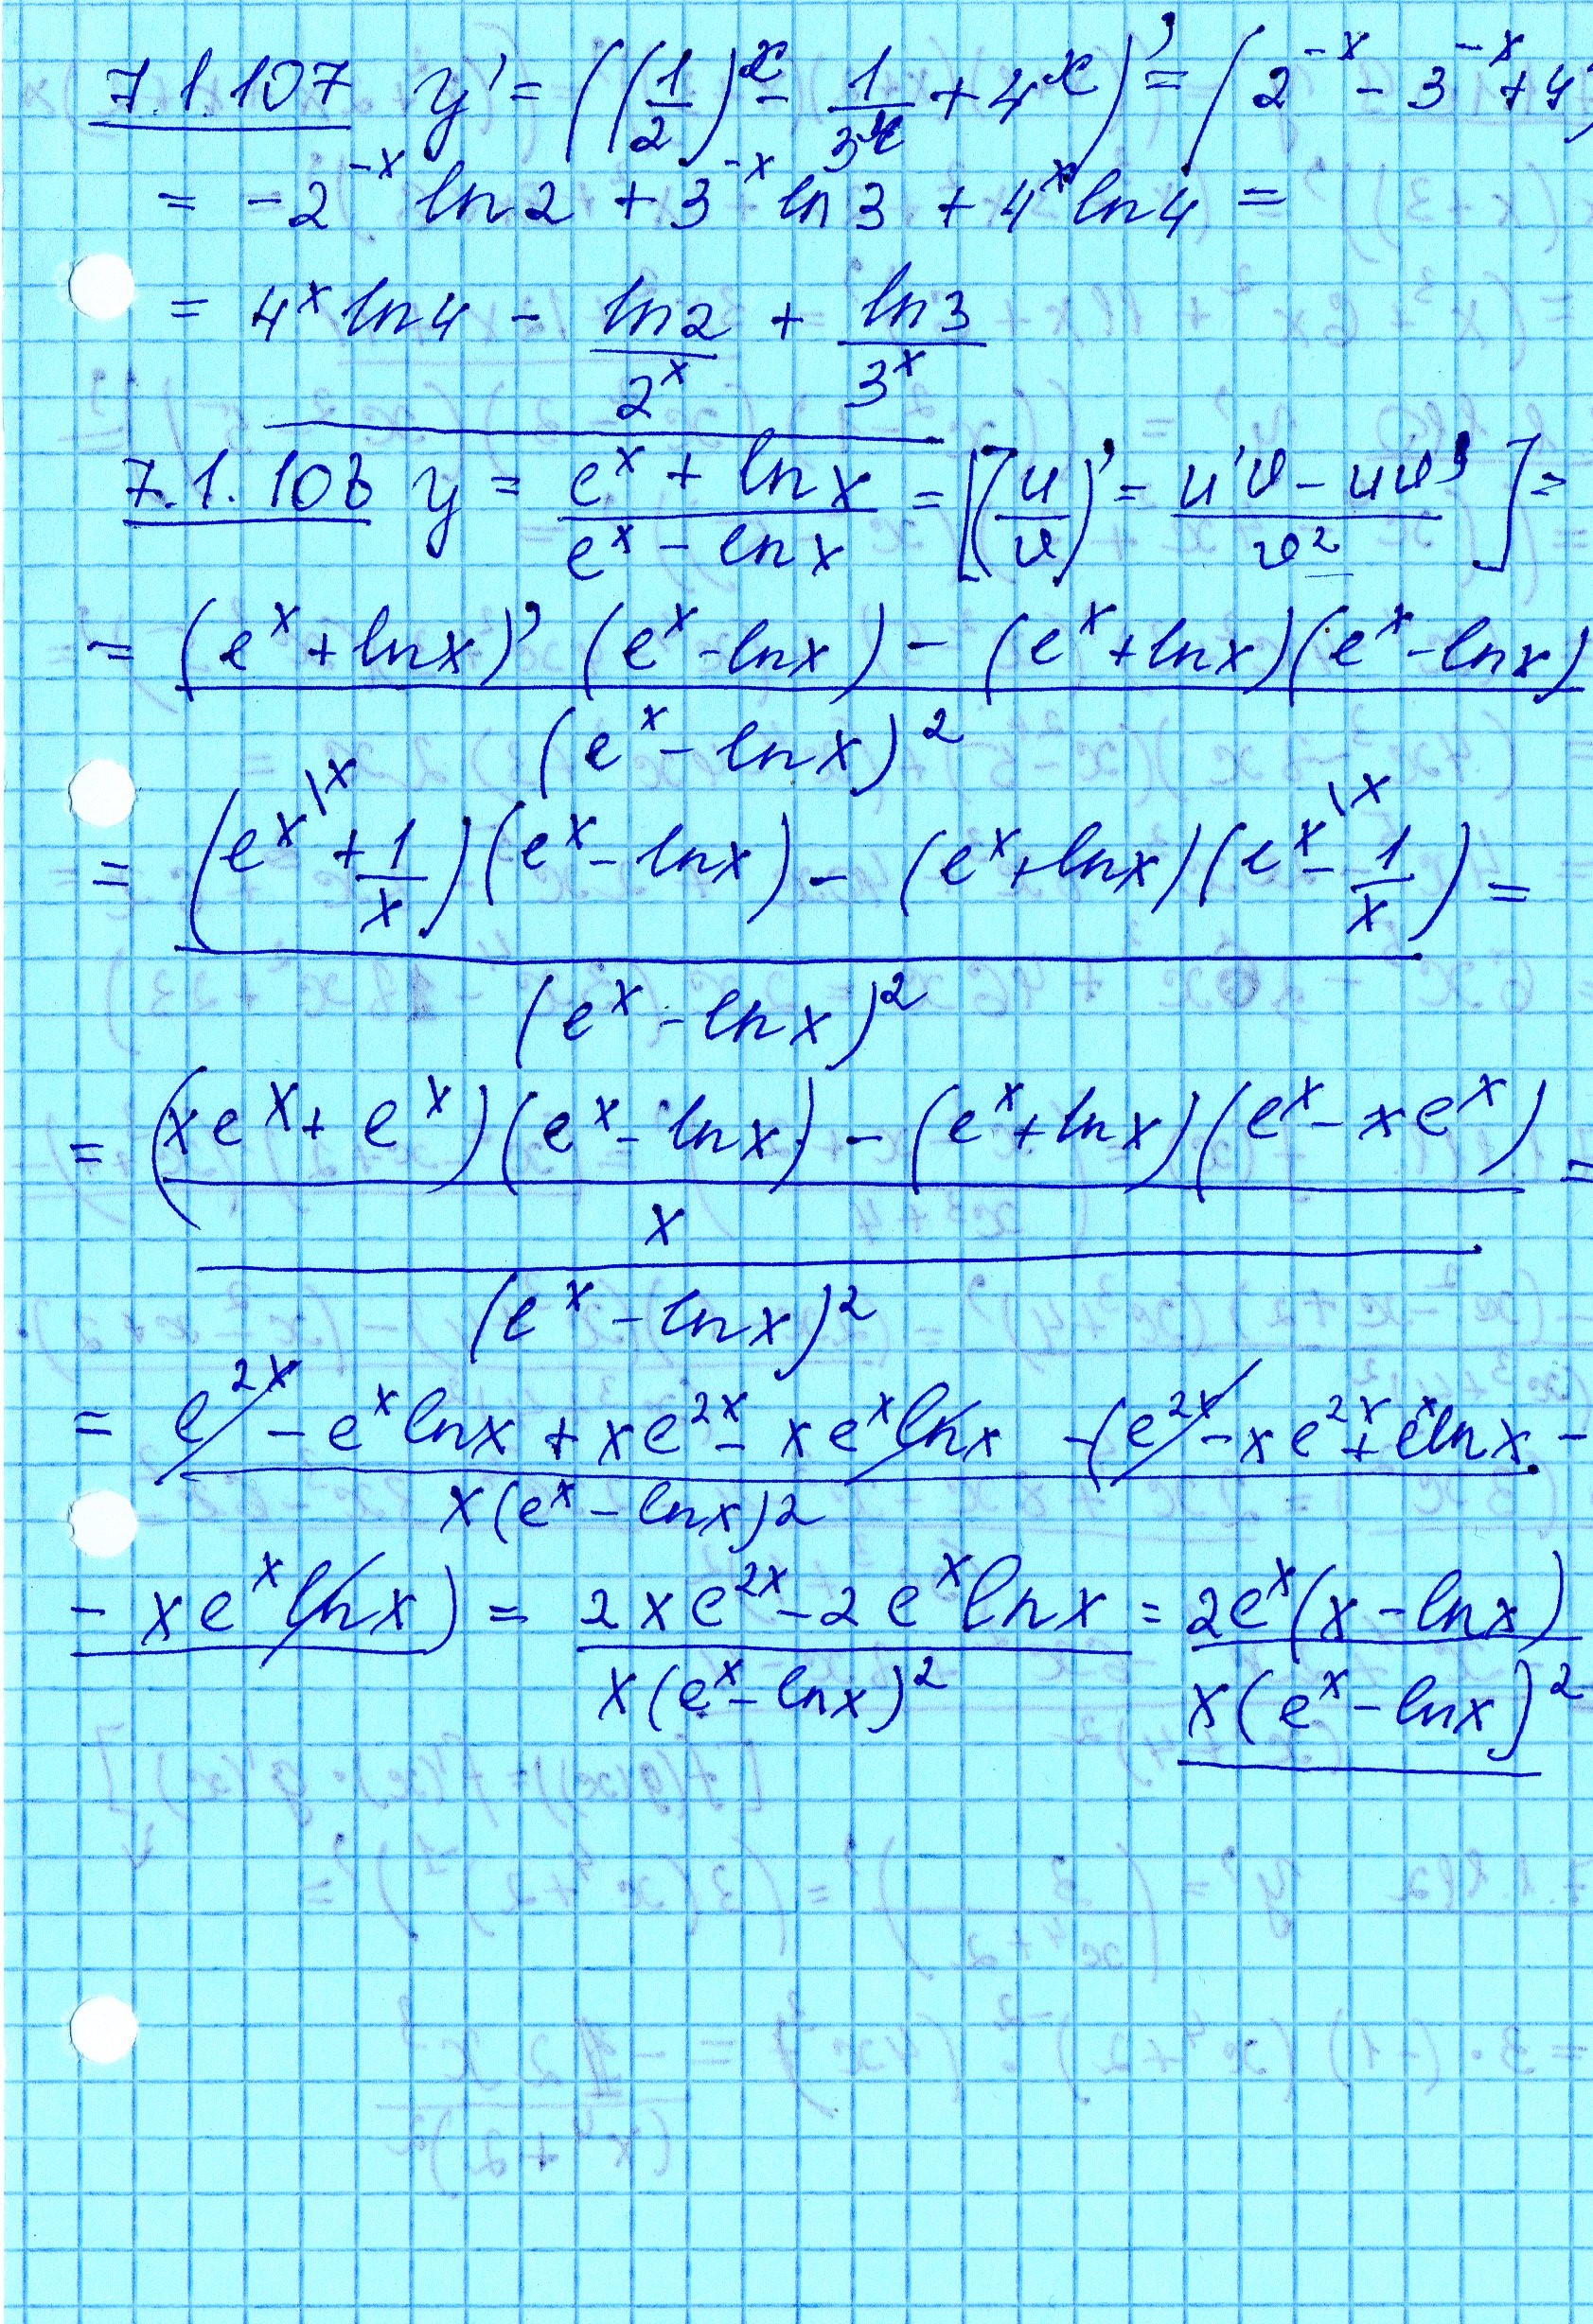 7.1.107 y' = ((1/2)^x - 1/3^x + 4^x)' = (2^-x - 3^-x + 4
= -2^-x ln2 + 3^-x ln3 + 4^x ln4 =
= 4^x ln4 - ln2/2^x + ln3/3^x
7.1.108 y = (e^x + lnx)/(e^x - lnx) = [(u/v)' = (u'v - uv')/v^2] =
= ((e^x + lnx)' (e^x - lnx) - (e^x + lnx)(e^x - lnx))/(e^x - lnx)^2
= ((e^x\x + 1/x)(e^x - lnx) - (e^x + lnx)(e^x\x - 1/x))/(e^x - lnx)^2 =
= (((xe^x + e^x)(e^x - lnx) - (e^x + lnx)(e^x - xe^x))/x)/(e^x - lnx)^2 =
= (e^2x - e^x lnx + xe^2x - xe^x lnx - (e^2x - xe^2x + e^x lnx -)/(x(e^x - lnx)^2)
- xe^x lnx) = (2xe^2x - 2e^x lnx)/(x(e^x - lnx)^2) = (2e^x(x - lnx))/(x(e^x - lnx)^2)